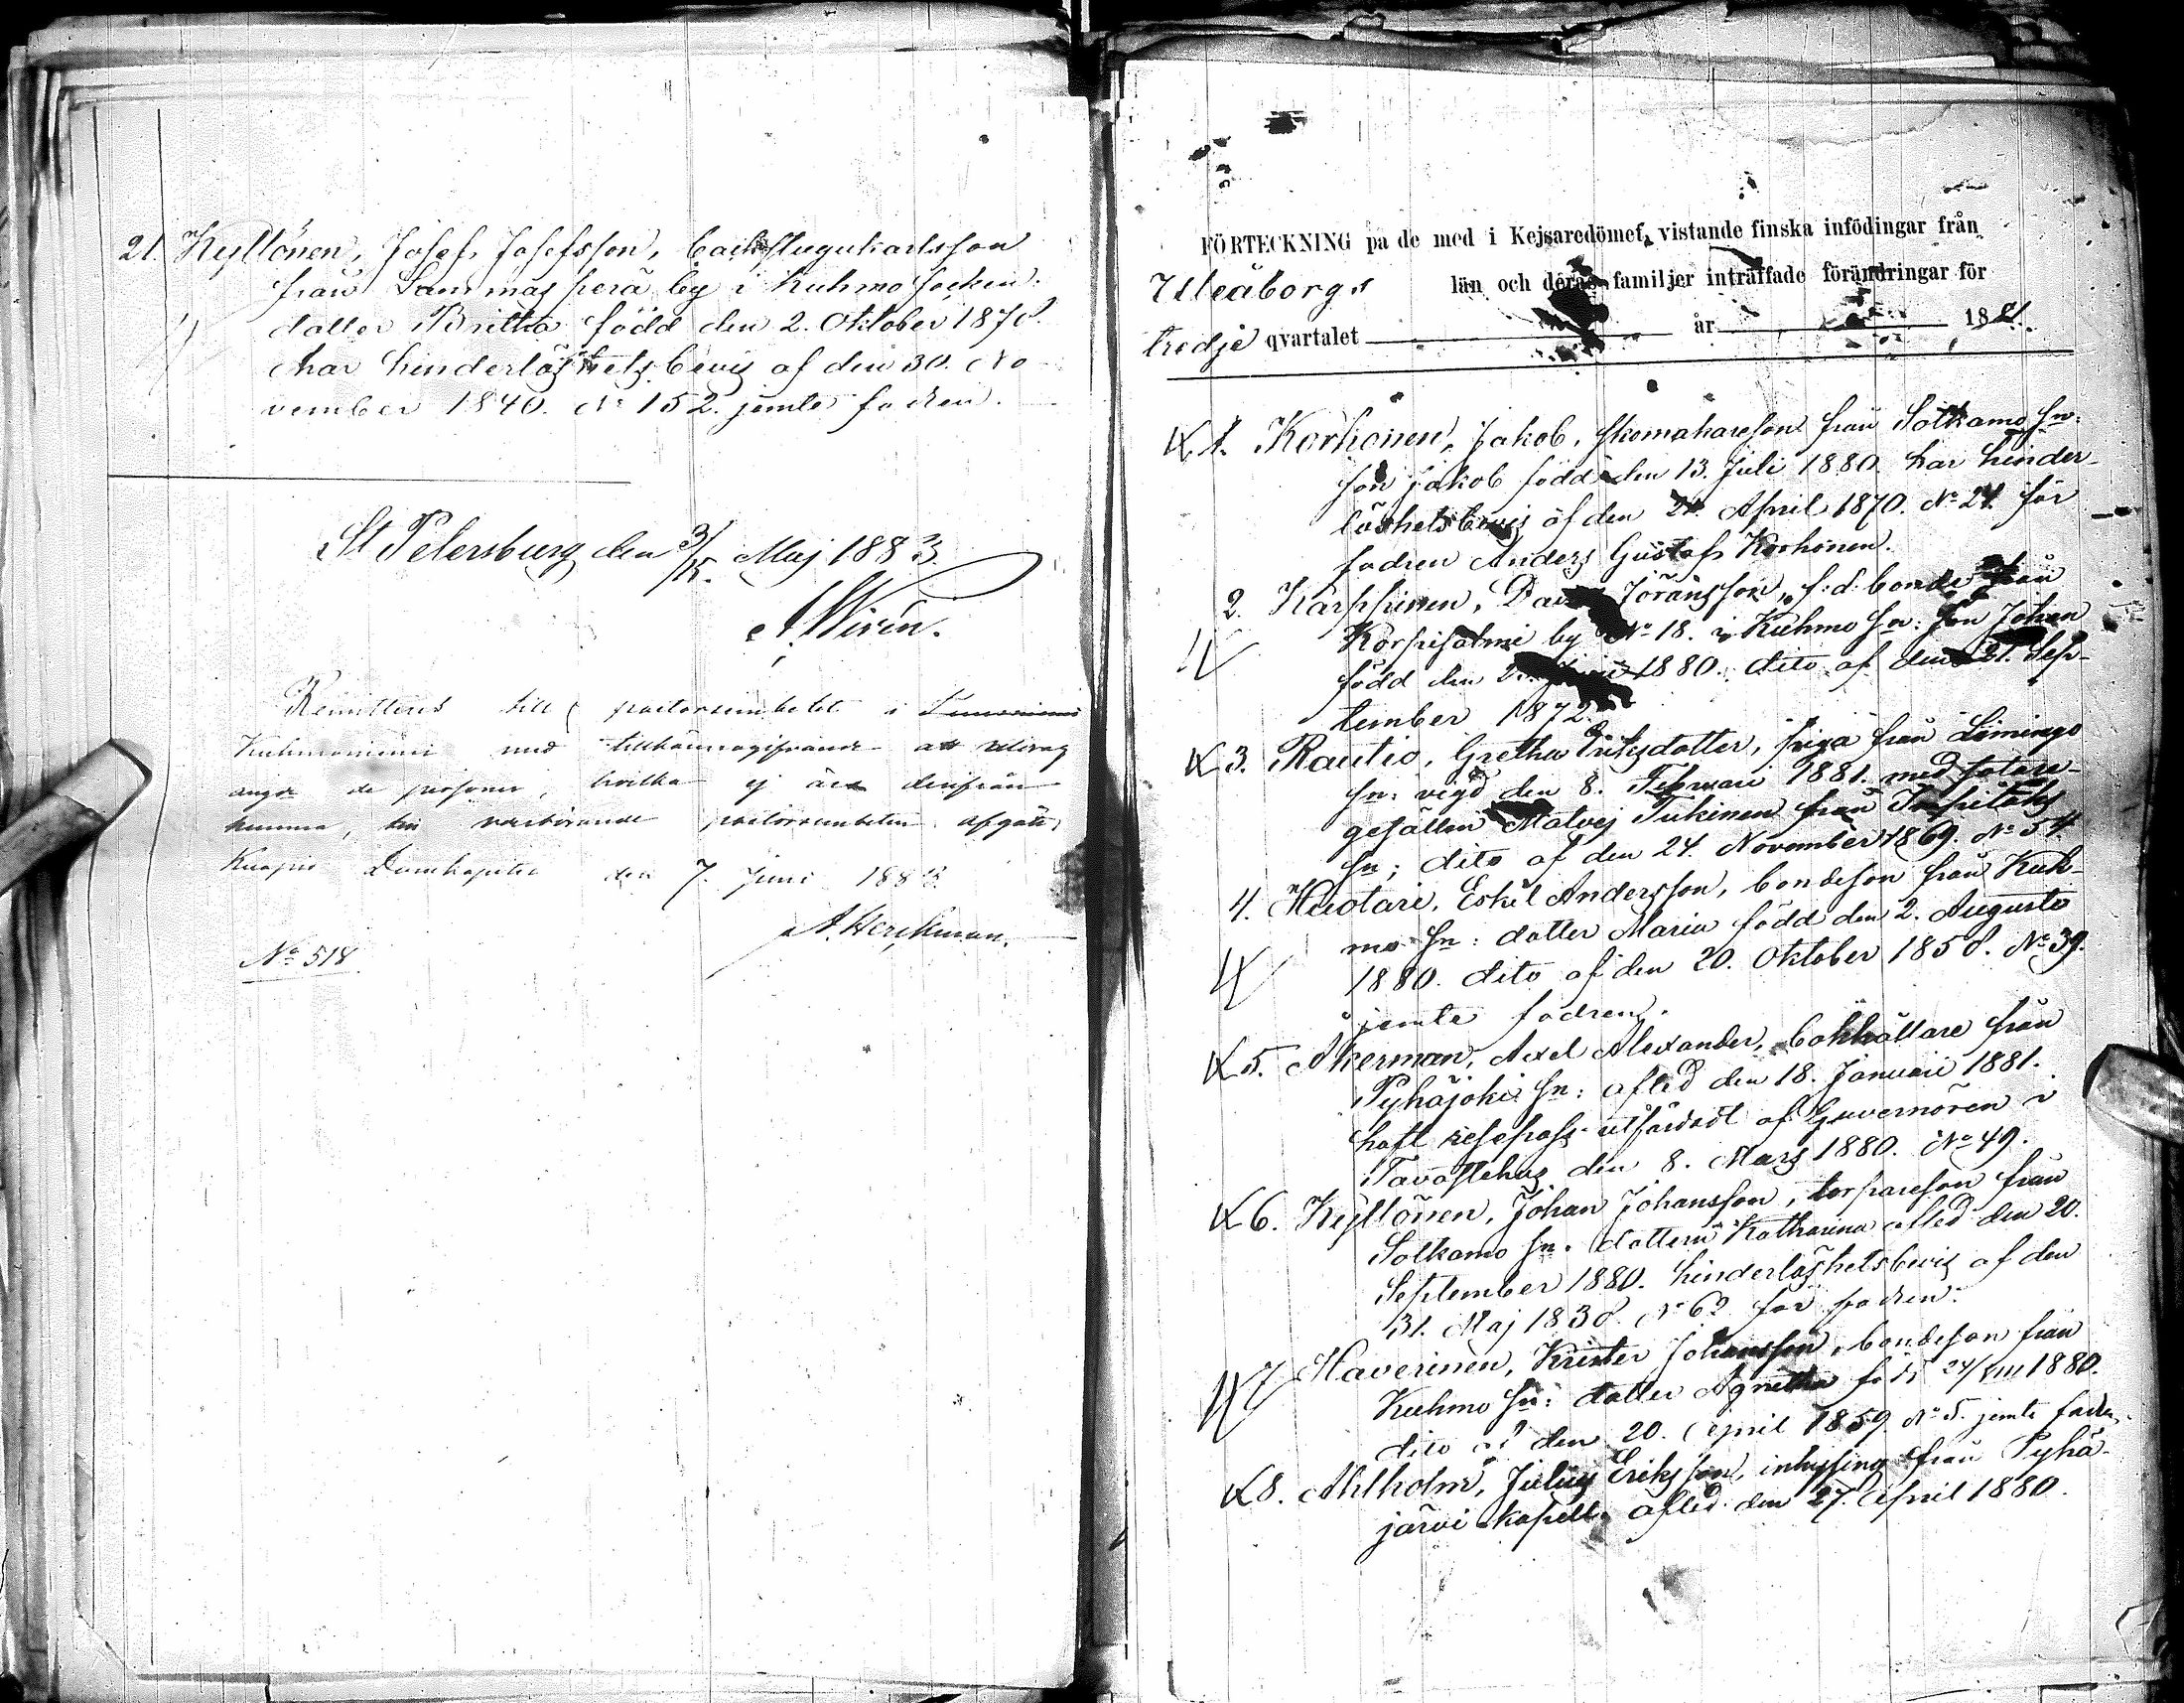 21. Kyllönen, Josef Josefsson, backstugukarlsson
från Lammasperä by i Kuhmo socken.
dotter Brittha född den 2. Oktober 1878.
har hinderlöshetsbevis af den 30. No
vember 1840. № 152. jemte fadren.
St Petersburg den 3/15. Maj 1883.
A Wirén.
Remitteras till pastorsembetet i
Kuhmoniemi med tillkännagifvande att utdrag
angå de personer, hvilka ej äro derifrån
komna, till vederbörande pastorsembeten afgått,
Kuopio Domkapitel den 7. Juni 1883.
A. Herckman.
№ 518
FÖRTECKNING på de med i Kejsaredömet vistande finska infödingar från
Uleåborgs län och deras familjer inträffade förändringar för
tredje qvartalet år 1881.
1. Korhonen, Jakob, skomakareson från Sotkamo sn:
son Jakob född den 13. Juli 1880. har hinder-
löshetsbevis af den 21. April 1870. № 24. för
fadren Anders Gustaf Korhonen.
2. Karppinen, David Jöransson, f:d: bonde från
Korpisalmi by № 18. i Kuhmo sn: son Johan
född den 1880. dito af den 21. Sep-
tember 1872.
3. Rautio, Gretha Eriksdotter, piga från Limingo
sn: vigd den 8. Februari 1881. med
gesällen Matvej Tukinen från
sn; dito af den 24. November 1869. № 54.
4. Huotari, Eskil Andersson, bondeson från Kuh-
mo sn: dotter Maria född den 2. Augusti
1880. dito af den 20. Oktober 1858. № 39.
jemte fadren.
5. Åkerman, Axel Alexander, bokhållare från
Pyhäjoki sn: afled den 18. Januari 1881.
haft respass utfärdadt af Guvernören i
Tavastehus den 8. Mars 1880. № 49.
6. Kyllönen, Johan Johansson, torpareson från
Sotkamo sn. dottern Katharina afled den 20.
September 1880. hinderlöshetsbevis af den
31. Maj 1838. № 62 för fadren.
7 Haverinen, Krister Johansson, bondeson från
Kuhmo sn: dotter Agnetha född 24/VIII 1880.
dito af den 20. April 1859. № 5. jemte fadren.
8. Ahlholm, Julius Eriksson, inhysing från Pyhä-
järvi kapell. afled den 27. April 1880.